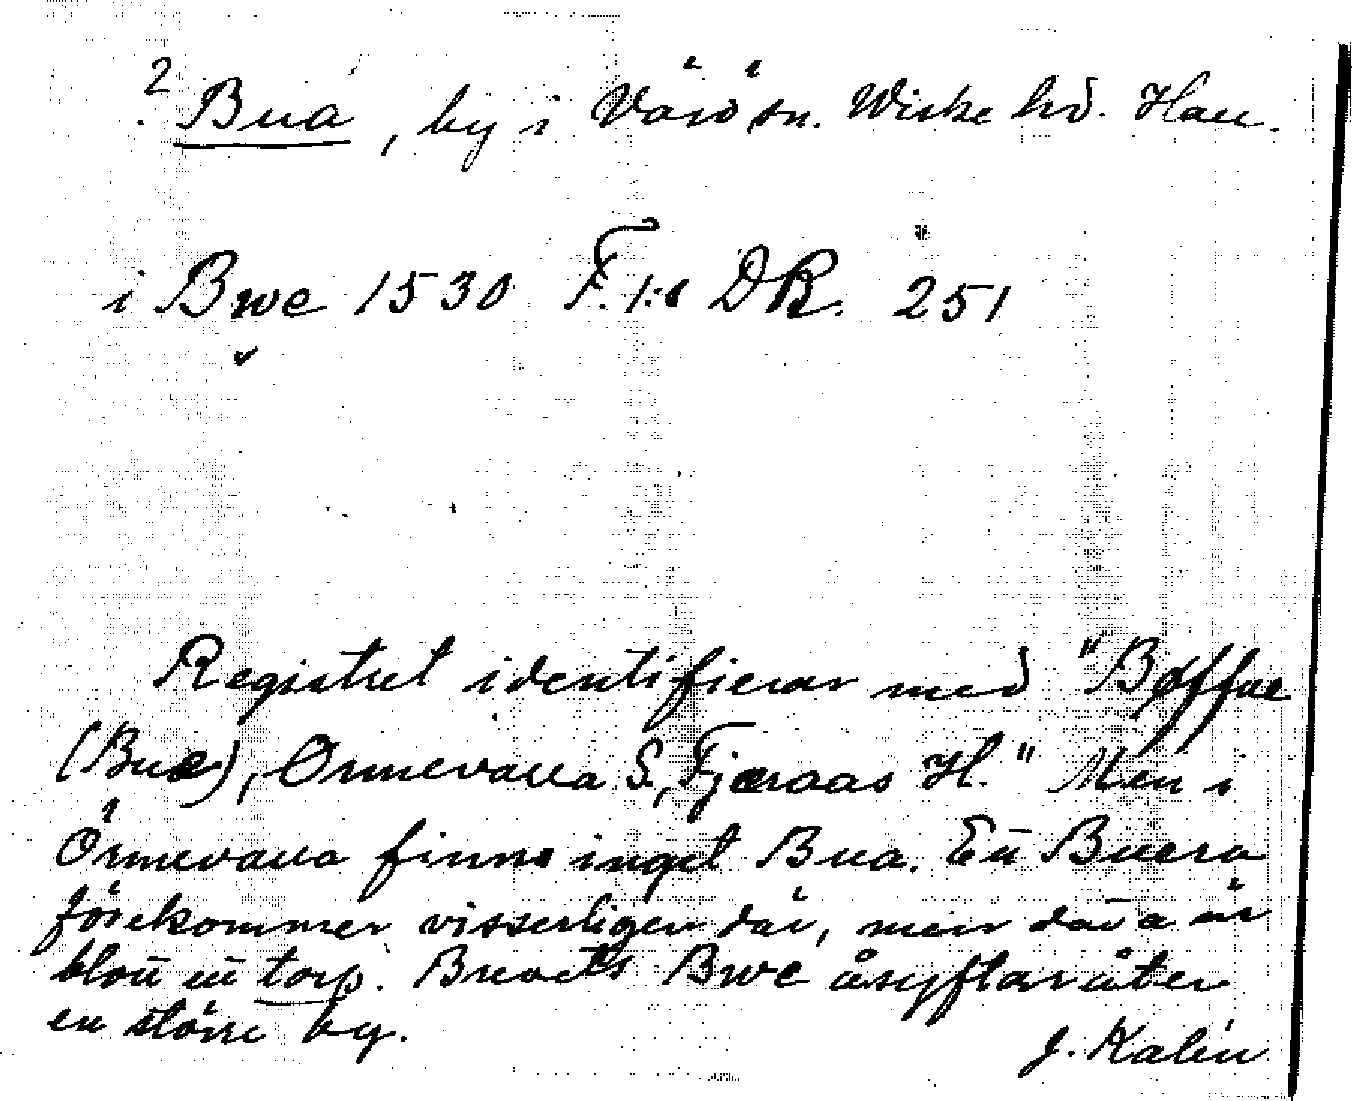 ? Bua, by i Värö sn. Wiske hd. Hall.
i Bwe 1530 F. 1:s DR. 251
Registret identifierar med "Bøffue
(Bua), Ornnevalla S., Fjæraas H." Men i
Önnevalla finns inget Bua. Ett Buera
förekommer visserligen där, men detta är
blott ett torp. Brevets Bwe åsyftar åter
en större by.
J. Kalén